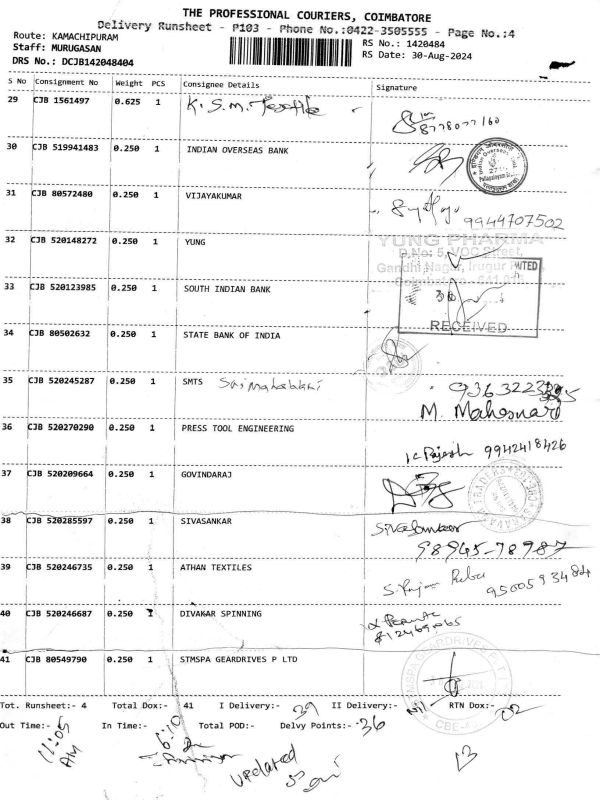 THE PROFESSIONAL COURIERS, COIMBATORE
Delivery Runsheet - P103 - Phone No.:0422-3505555 - Page No.:4
Route: KAMACHIPURAM
Staff: MURUGASAN
DRS No.: DCJB142048404
RS No.: 1420484
RS Date: 30-Aug-2024
S No Consignment No Weight PCS Consignee Details Signature
29 CJB 1561497 0.625 1 K.S.M. Textile
8778077160
30 CJB 519941483 0.250 1 INDIAN OVERSEAS BANK
31 CJB 80572480 0.250 1 VIJAYAKUMAR
9944707502
32 CJB 520148272 0.250 1 YUNG
YUNG PHARMA
D.No: 5, VOC Street,
Gandhi Nagar, Irugur
33 CJB 520123985 0.250 1 SOUTH INDIAN BANK
RECEIVED
34 CJB 80502632 0.250 1 STATE BANK OF INDIA
35 CJB 520245287 0.250 1 SMTS
M. Maheswari
36 CJB 520270290 0.250 1 PRESS TOOL ENGINEERING
K Rajesh 9942418426
37 CJB 520209664 0.250 1 GOVINDARAJ
38 CJB 520285597 0.250 1 SIVASANKAR
Sivasankar
98945-78987
39 CJB 520246735 0.250 1 ATHAN TEXTILES
9500593484
40 CJB 520246687 0.250 1 DIVAKAR SPINNING
41 CJB 80549790 0.250 1 STMSPA GEARDRIVES P LTD
Tot. Runsheet:- 4 Total Dox:- 41 I Delivery:- 39 II Delivery:- Nil RTN Dox:- 02
Out Time:- 11:05 AM In Time:- 6:10 Total POD:- Delvy Points:- 36
updated